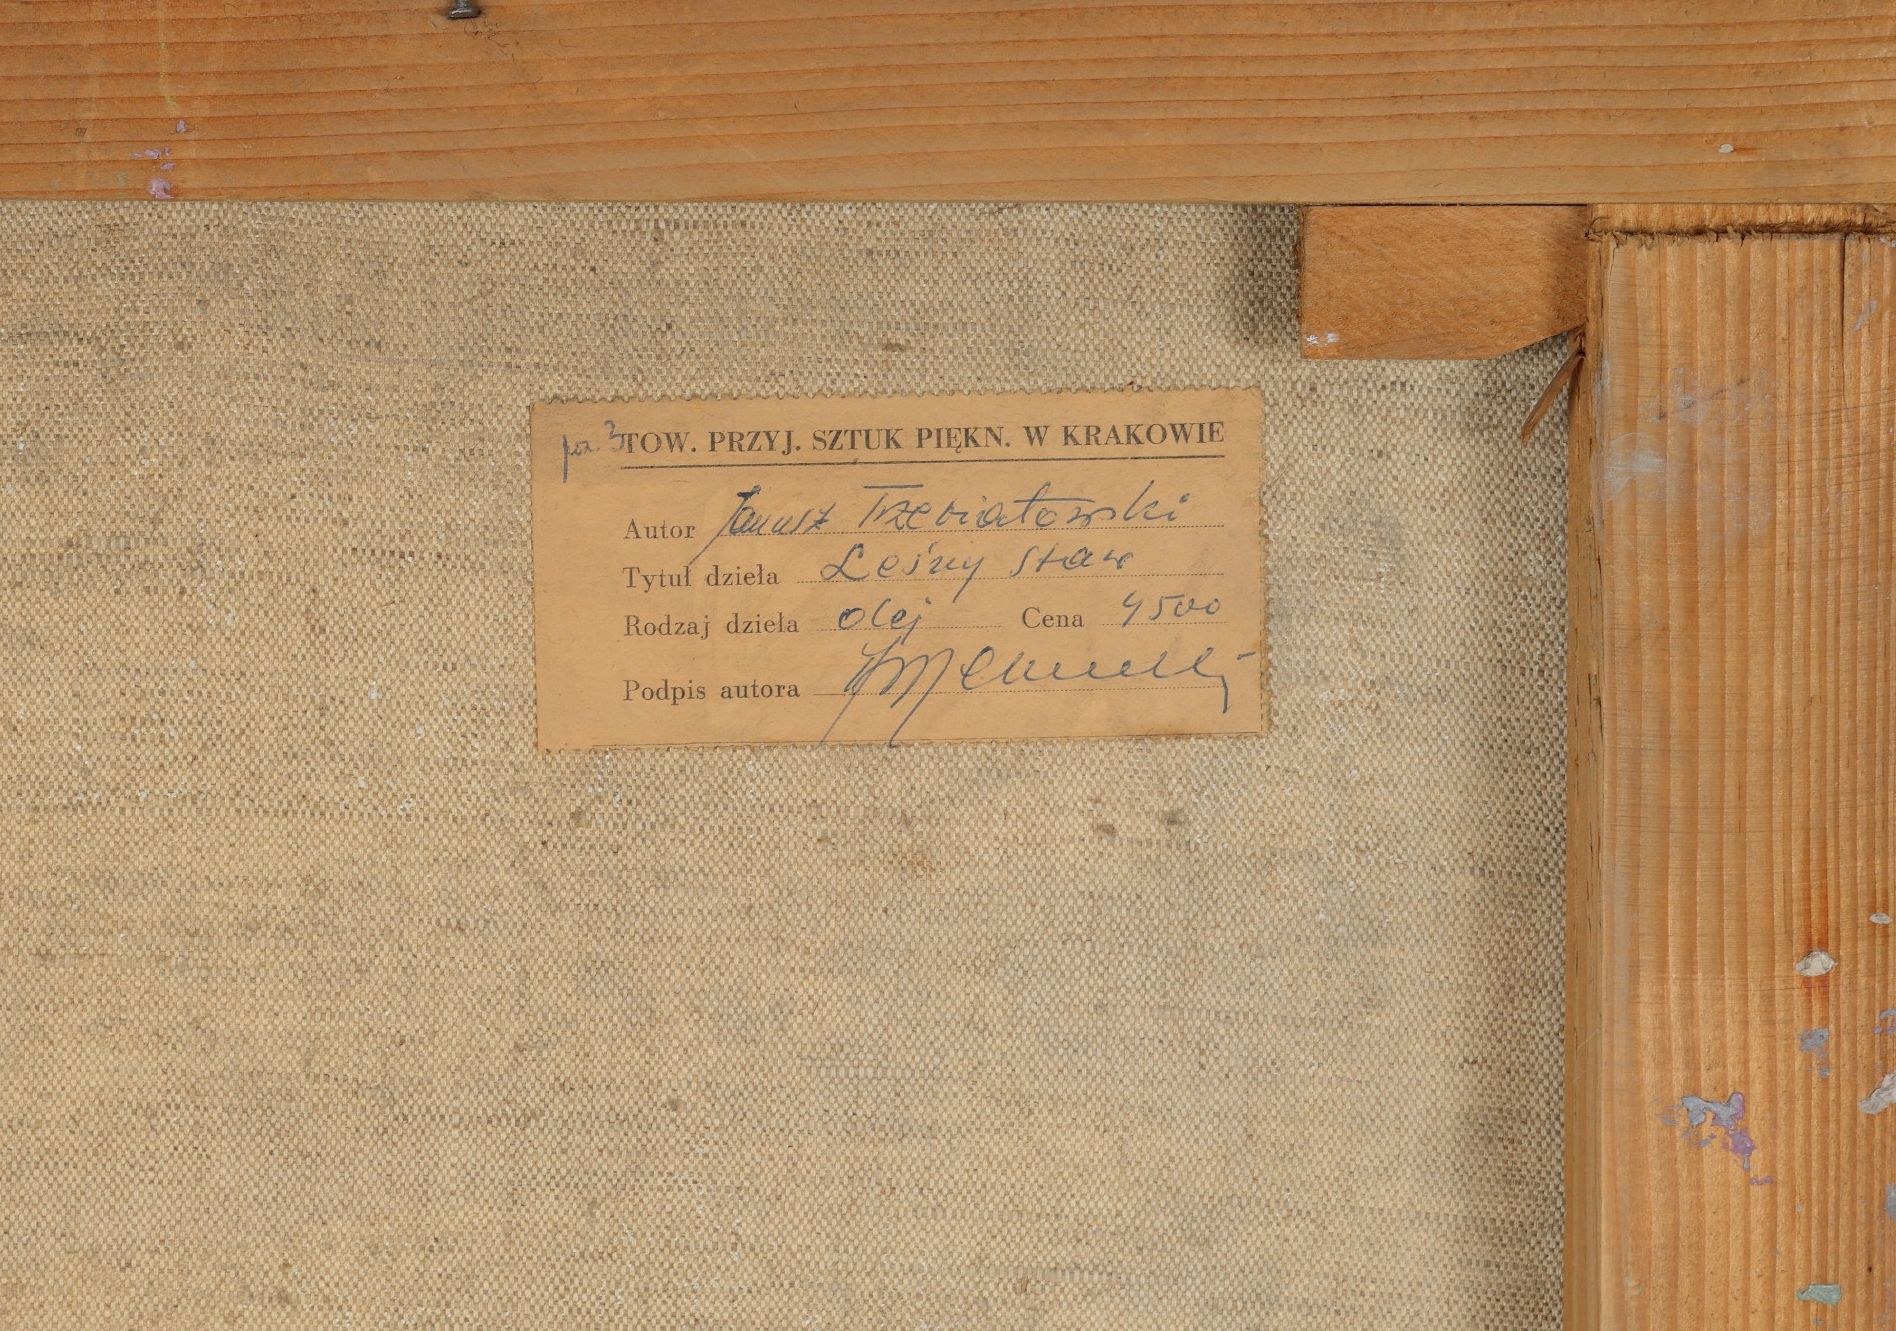 poz. 3 TOW. PRZYJ. SZTUK PIĘKN. W KRAKOWIE
Autor Janusz Trzebiatowski
Tytuł dzieła Leśny staw
Rodzaj dzieła olej Cena 4500
Podpis autora